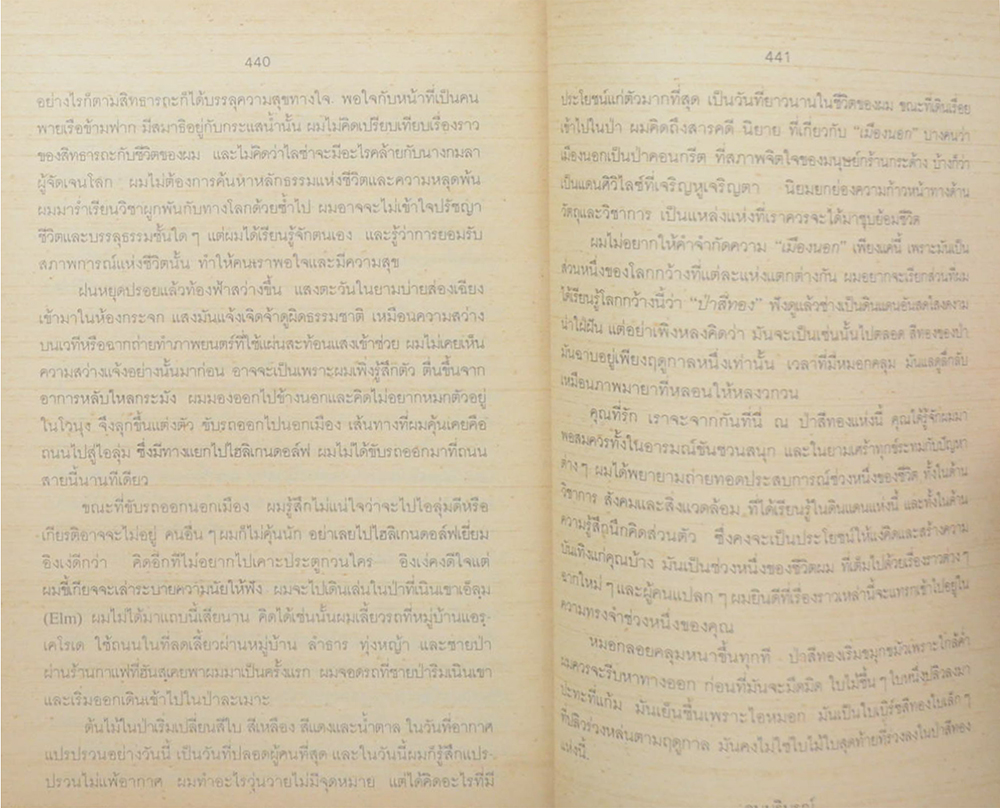 440
อย่างไรก็ตามสิทธารถะก็ได้บรรลุความสุขทางใจ พอใจกับหน้าที่เป็นคน
พายเรือข้ามฟาก มีสมาธิอยู่กับกระแสน้ำนั้น ผมไม่คิดเปรียบเทียบเรื่องราว
ของสิทธารถะกับชีวิตของผม และไม่คิดว่าไลซ่าจะมีอะไรคล้ายกับนางกมลา
ผู้จัดเจนโลก ผมไม่ต้องการค้นหาหลักธรรมแห่งชีวิตและความหลุดพ้น
ผมมาร่ำเรียนวิชาผูกพันกับทางโลกด้วยซ้ำไป ผมอาจจะไม่เข้าใจปรัชญา
ชีวิตและบรรลุธรรมชั้นใดๆ แต่ผมได้เรียนรู้จักตนเอง และรู้ว่าการยอมรับ
สภาพการณ์แห่งชีวิตนั้น ทำให้คนเราพอใจและมีความสุข
ฝนหยุดปรอยแล้วท้องฟ้าสว่างขึ้น แสงตะวันในยามบ่ายส่องเฉียง
เข้ามาในห้องกระจก แสงมันแจ้งเจิดจ้าดูผิดธรรมชาติ เหมือนความสว่าง
บนเวทีหรือฉากถ่ายทำภาพยนตร์ที่ใช้แผ่นสะท้อนแสงเข้าช่วย ผมไม่เคยเห็น
ความสว่างแจ้งอย่างนั้นมาก่อน อาจจะเป็นเพราะผมเพิ่งรู้สึกตัว ตื่นขึ้นจาก
อาการหลับใหลกระมัง ผมมองออกไปข้างนอกและคิดไม่อยากหมกตัวอยู่
ในไวนุง จึงลุกขึ้นแต่งตัว ขับรถออกไปนอกเมือง เส้นทางที่ผมคุ้นเคยคือ
ถนนไปสู่ไอลุ่ม ซึ่งมีทางแยกไปไฮลิเกนดอล์ฟ ผมไม่ได้ขับรถออกมาที่ถนน
สายนี้นานทีเดียว
ขณะที่ขับรถออกนอกเมือง ผมรู้สึกไม่แน่ใจว่าจะไปไอลุ่มดีหรือ
เกียรติอาจจะไม่อยู่ คนอื่นๆ ผมก็ไม่คุ้นนัก อย่าเลยไปไฮลิเกนดอล์ฟเยี่ยม
อิงเง่ดีกว่า คิดอีกทีไม่อยากไปเคาะประตูกวนใคร อิงเง่คงดีใจแต่
ผมขี้เกียจจะเล่าระบายความนัยให้ฟัง ผมจะไปเดินเล่นในป่าที่เนินเขาเอ็ลุม
(Elm) ผมไม่ได้มาแถบนี้เสียนาน คิดได้เช่นนั้นผมเลี้ยวรถที่หมู่บ้านแอร-
เคโรเด ใช้ถนนในที่ลดเลี้ยวผ่านหมู่บ้าน ลำธาร ทุ่งหญ้า และชายป่า
ผ่านร้านกาแฟที่ฮันสเคยพาผมมาเป็นครั้งแรก ผมจอดรถที่ชายป่าริมเนินเขา
และเริ่มออกเดินเข้าไปในป่าละเมาะ
ต้นไม้ในป่าเริ่มเปลี่ยนสีใบ สีเหลือง สีแดงและน้ำตาล ในวันที่อากาศ
แปรปรวนอย่างวันนี้ เป็นวันที่ปลอดผู้คนที่สุด และในวันนี้ผมก็รู้สึกแปร-
ปรวนไม่แพ้อากาศ ผมทำอะไรวุ่นวายไม่มีจุดหมาย แต่ได้คิดอะไรที่มี
441
ประโยชน์แก่ตัวมากที่สุด เป็นวันที่ยาวนานในชีวิตของผม ขณะที่เดินเรื่อย
เข้าไปในป่า ผมคิดถึงสารคดี นิยาย ที่เกี่ยวกับ “เมืองนอก” บางคนว่า
เมืองนอกเป็นป่าคอนกรีต ที่สภาพจิตใจของมนุษย์กร้านกระด้าง บ้างก็ว่า
เป็นแดนศิวิไลซ์ที่เจริญหูเจริญตา นิยมยกย่องความก้าวหน้าทางด้าน
วัตถุและวิชาการ เป็นแหล่งแห่งที่เราควรจะได้มาชุบย้อมชีวิต
ผมไม่อยากให้คำจำกัดความ “เมืองนอก” เพียงแค่นี้ เพราะมันเป็น
ส่วนหนึ่งของโลกกว้างที่แต่ละแห่งแตกต่างกัน ผมอยากจะเรียกส่วนที่ผม
ได้เรียนรู้โลกกว้างนี้ว่า “ป่าสีทอง” ฟังดูแล้วช่างเป็นดินแดนอันสดใสงดงาม
น่าใฝ่ฝัน แต่อย่าเพิ่งหลงคิดว่า มันจะเป็นเช่นนั้นไปตลอด สีทองของป่า
มันฉาบอยู่เพียงฤดูกาลหนึ่งเท่านั้น เวลาที่มีหมอกคลุม มันแลดูลึกลับ
เหมือนภาพมายาที่หลอนให้หลงวกวน
คุณที่รัก เราจะจากกันที่นี่ ณ ป่าสีทองแห่งนี้ คุณได้รู้จักผมมา
พอสมควรทั้งในอารมณ์ขันชวนสนุก และในยามเศร้าทุกข์ระทมกับปัญหา
ต่างๆ ผมได้พยายามถ่ายทอดประสบการณ์ช่วงหนึ่งของชีวิต ทั้งในด้าน
วิชาการ สังคมและสิ่งแวดล้อม ที่ได้เรียนรู้ในดินแดนแห่งนี้ และทั้งในด้าน
ความรู้สึกนึกคิดส่วนตัว ซึ่งคงจะเป็นประโยชน์ให้แง่คิดและสร้างความ
บันเทิงแก่คุณบ้าง มันเป็นช่วงหนึ่งของชีวิตผม ที่เต็มไปด้วยเรื่องราวต่างๆ
ฉากใหม่ๆ และผู้คนแปลกๆ ผมยินดีที่เรื่องราวเหล่านี้จะแทรกเข้าไปอยู่ใน
ความทรงจำช่วงหนึ่งของคุณ
หมอกลอยคลุมหนาขึ้นทุกที ป่าสีทองเริ่มขมุกขมัวเพราะใกล้ค่ำ
ผมควรจะรีบหาทางออก ก่อนที่มันจะมืดมิด ใบไม้ชื้นๆ ใบหนึ่งปลิวลงมา
ปะทะที่แก้ม มันเย็นชื้นเพราะไอหมอก มันเป็นใบเบิร์ชสีทองใบเล็กๆ
ที่ปลิวร่วงหล่นตามฤดูกาล มันคงไม่ใช่ใบไม้ใบสุดท้ายที่ร่วงลงในป่าสีทอง
แห่งนี้